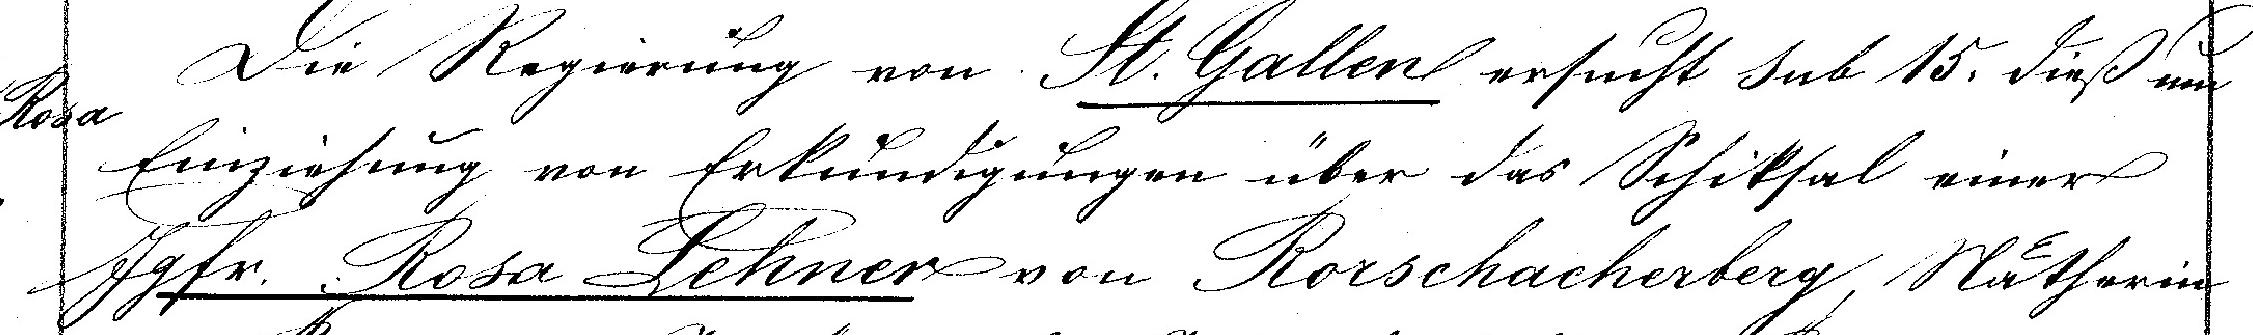 Die Regierung von St. Gallen ersucht sub 15. dieß um
Rosa
Einziehung von Erkundigungen über das Schiksal einer
Jgfr. Rosa Lehner von Rorschacherberg, Nätherin